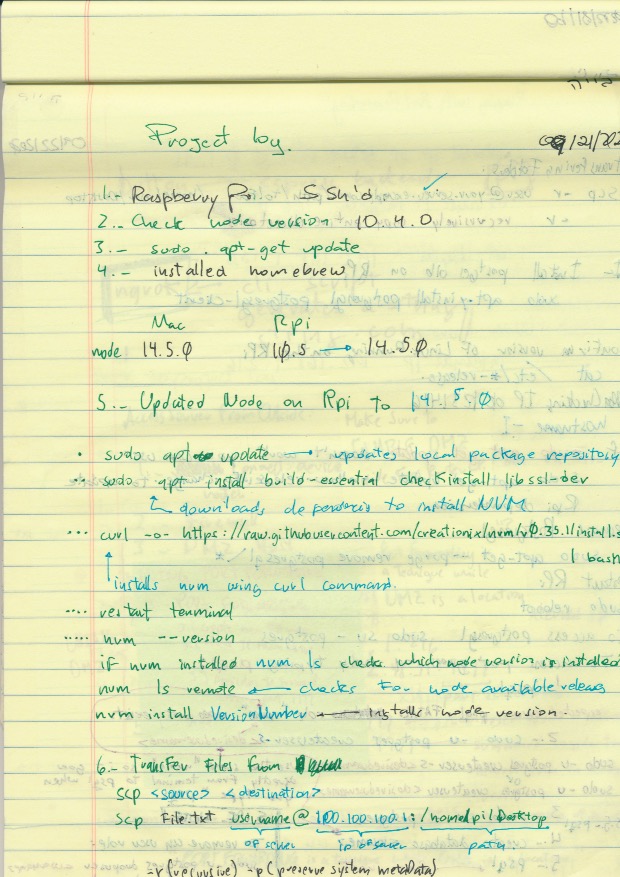 Project log.
09/21/202
1.- Raspberry Pi SSh'd
2.- Check node version 10.4.0
3.- sudo apt-get update
4.- installed homebrew
Mac Rpi
node 14.5.0 10.5 → 14.5.0
5.- Updated Node on Rpi to 14.5.0
. sudo apt update → updates local package repository
.. sudo apt install build-essential checkinstall libssl-dev
↳ downloads depencies to install NVM
... curl -o- https://raw.githubusercontent.com/creationix/nvm/v0.35.1/install.s
| bash
↑
installs nvm using curl command.
.... restart terminal
..... nvm --version
if nvm installed nvm ls checks which node version is installed
nvm ls remote ← checks for node available releases
nvm install VersionNumber ← Installs node version.
6.- Transfer Files From
scp <source> <destination>
scp File.txt username@100.100.100.1:/home/pi/Desktop
of server ip of server path
-r (recursive) -p (preserve system metadata)